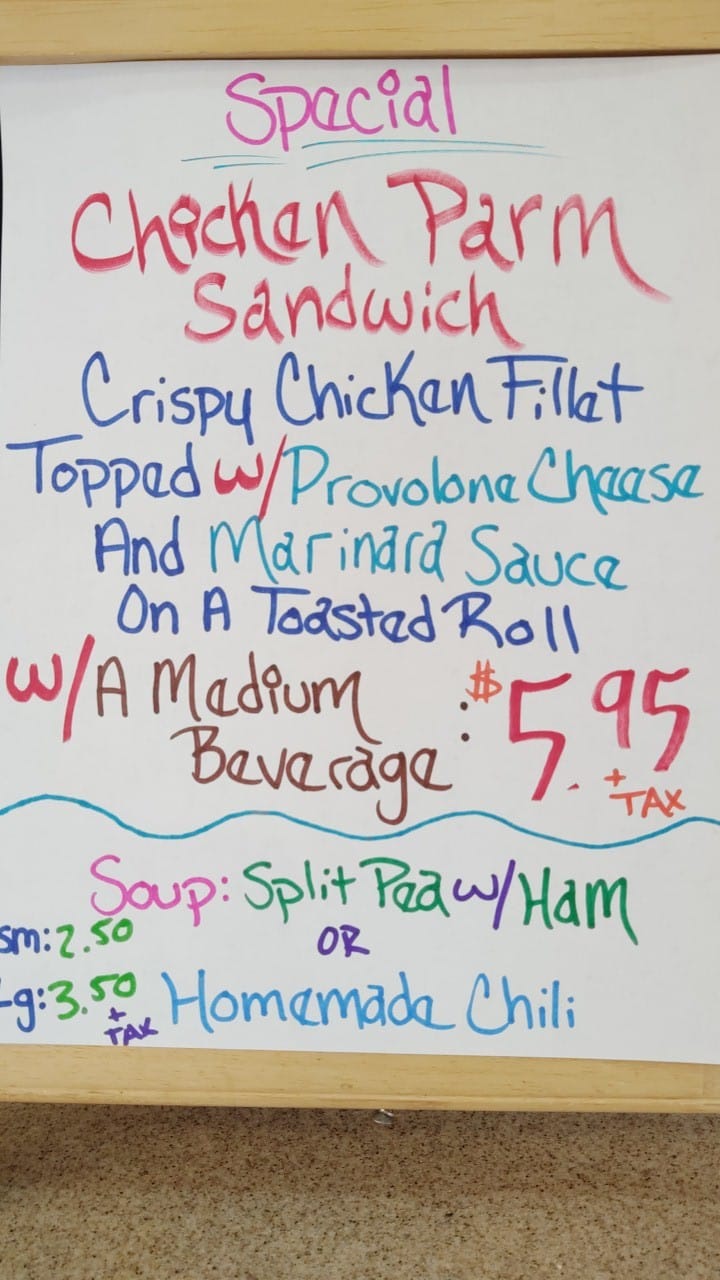 Special
Chicken Parm
Sandwich
Crispy Chicken Fillet
Topped w/Provolone Cheese
And Marinara Sauce
On A Toasted Roll
w/A Medium
Beverage : $5.95
+ TAX
Soup: Split Pea w/Ham
sm: 2.50
OR
Lg: 3.50 Homemade Chili
+ TAX